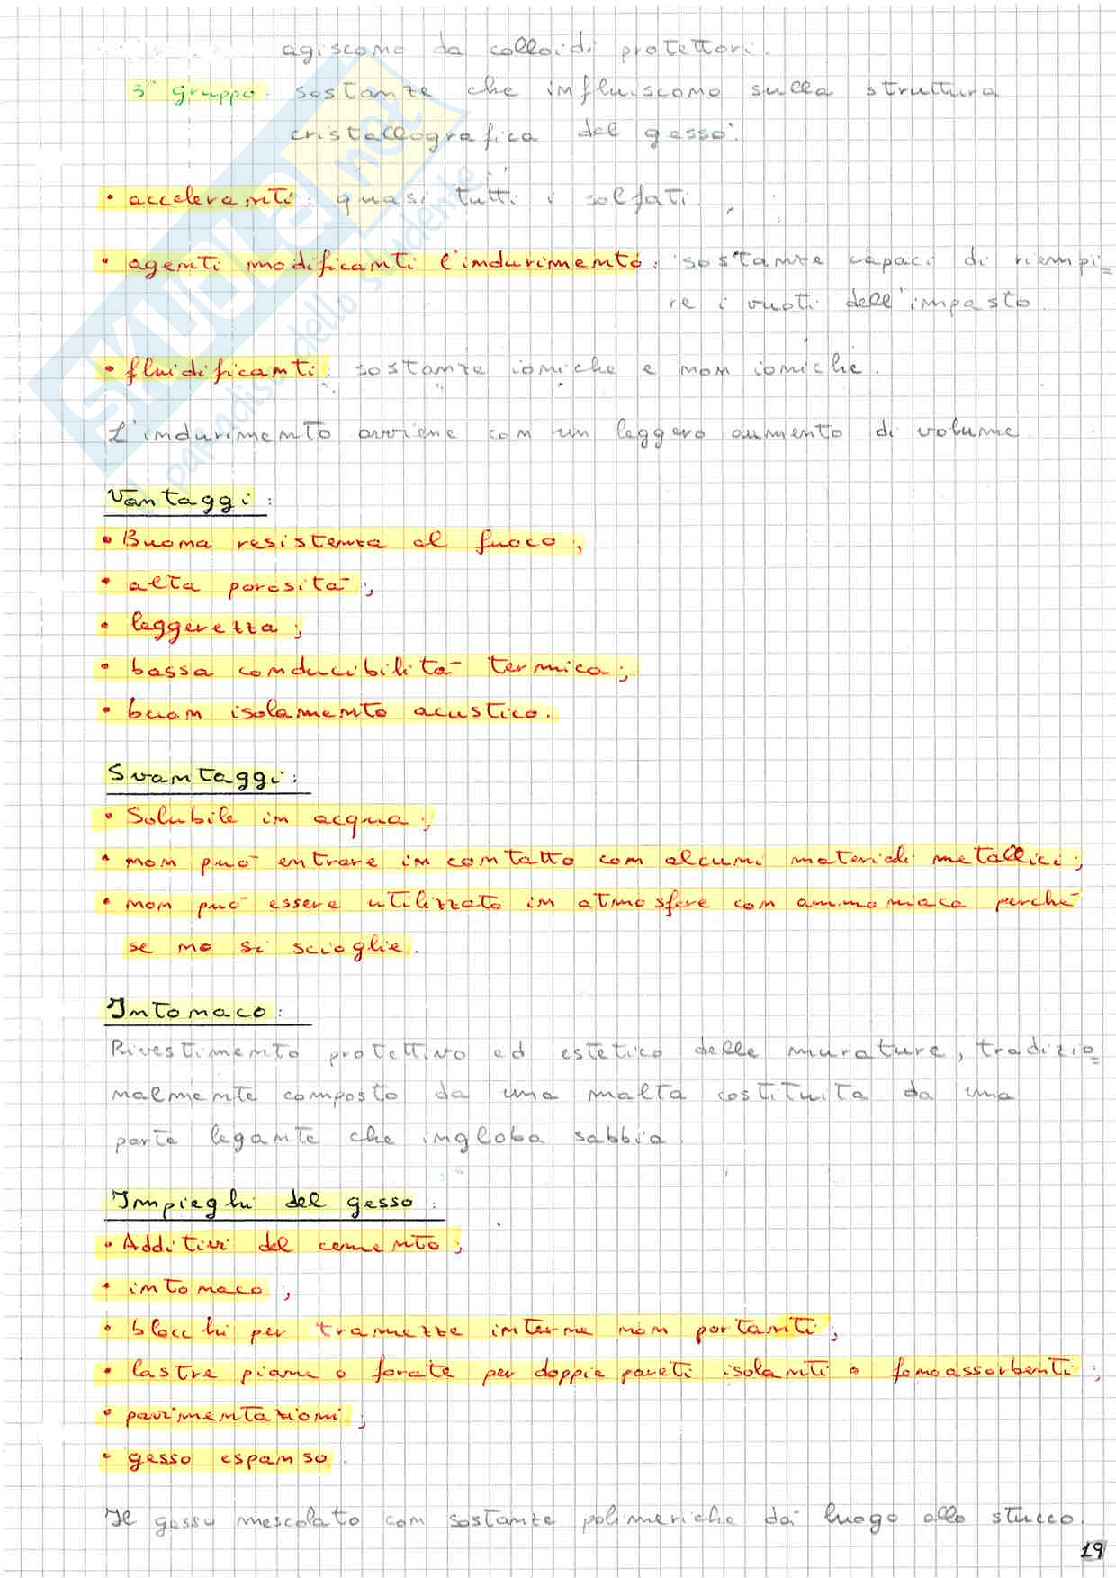 agiscono da colloidi protettori.
3° gruppo: sostanze che influiscono sulla struttura
cristallografica del gesso.
• acceleranti: quasi tutti i solfati.
• agenti modificanti l'indurimento: sostanze capaci di riempi=
re i vuoti dell'impasto.
• fluidificanti: sostanze ioniche e non ioniche.
L'indurimento avviene con un leggero aumento di volume
Vantaggi:
• Buona resistenza al fuoco;
• alta porosità;
• leggerezza;
• bassa conducibilità termica;
• buon isolamento acustico.
Svantaggi:
• Solubile in acqua;
• non può entrare in contatto con alcuni materiali metallici;
• non può essere utilizzato in atmosfere con ammoniaca perché
se no si scioglie.
Intonaco:
Rivestimento protettivo ed estetico delle murature, tradizio=
nalmente composto da una malta costituita da una
parte legante che ingloba sabbia
Impieghi del gesso:
• Additivi del cemento;
• intonaco;
• blocchi per tramezze interne non portanti;
• lastre piane o forate per doppie pareti isolanti o fonoassorbenti;
• pavimentazioni;
• gesso espanso.
Il gesso mescolato con sostanze polimeriche dai luogo allo stucco.
19
SKUOLA.net
paradiso dello studente